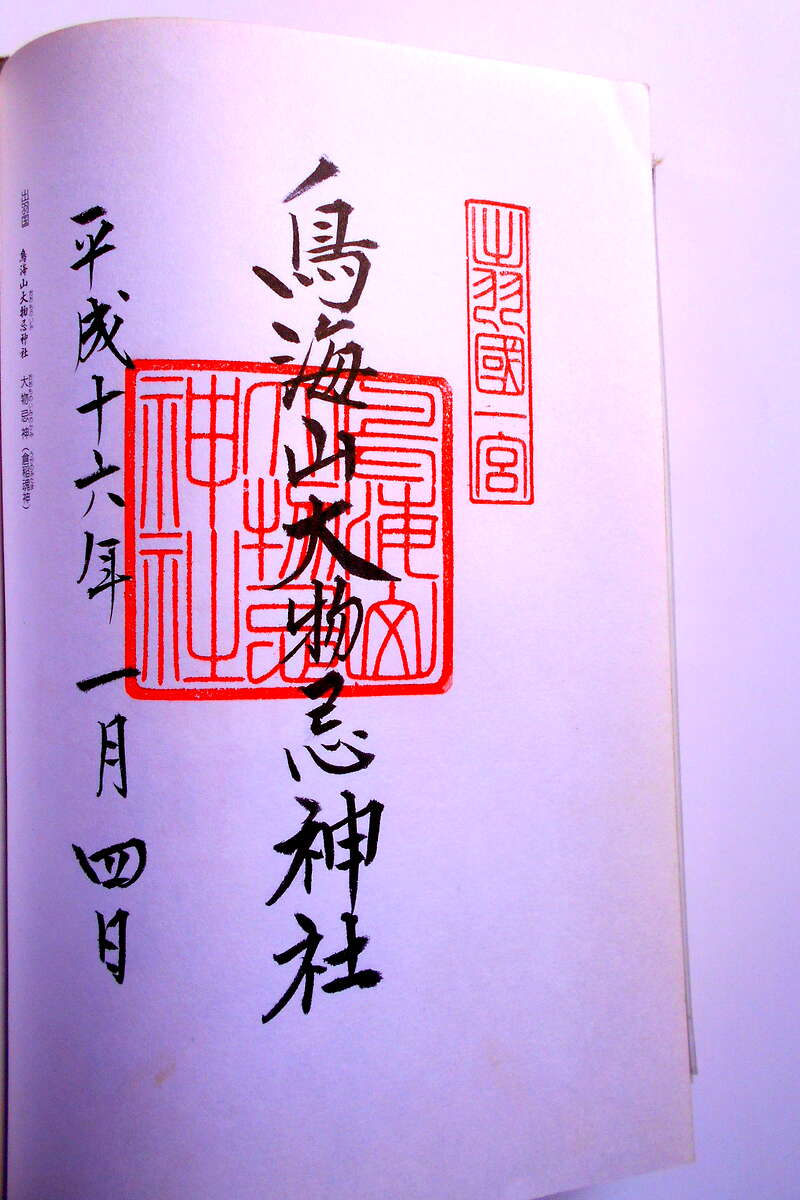 出羽國一宮
鳥海山大物忌神社
鳥海山大物忌神社
平成十六年一月四日
出羽国 鳥海山大物忌神社 大物忌神(倉稲魂神)